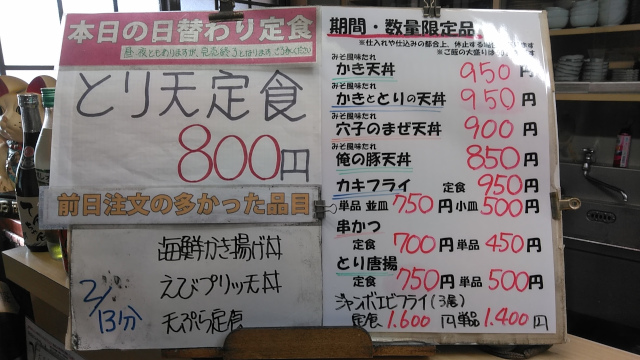 本日の日替わり定食
とり天定食
800円
前日注文の多かった品目
海鮮かき揚げ丼
えびプリッ天丼
天ぷら定食
2/13分
期間・数量限定品
※仕入れや仕込みの都合上、休止する
※ご飯の大盛りは
みそ風味たれ
かき天丼 950円
みそ風味たれ
かきととりの天丼 950円
みそ風味たれ
穴子のまぜ天丼 900円
みそ風味たれ
俺の豚天丼 850円
カキフライ 定食 950円
単品 並皿 750円 小皿 500円
串かつ
定食 700円 単品 450円
とり唐揚
定食 750円 単品 500円
ジャンボエビフライ(3尾)
定食 1.600円 単品 1.400円